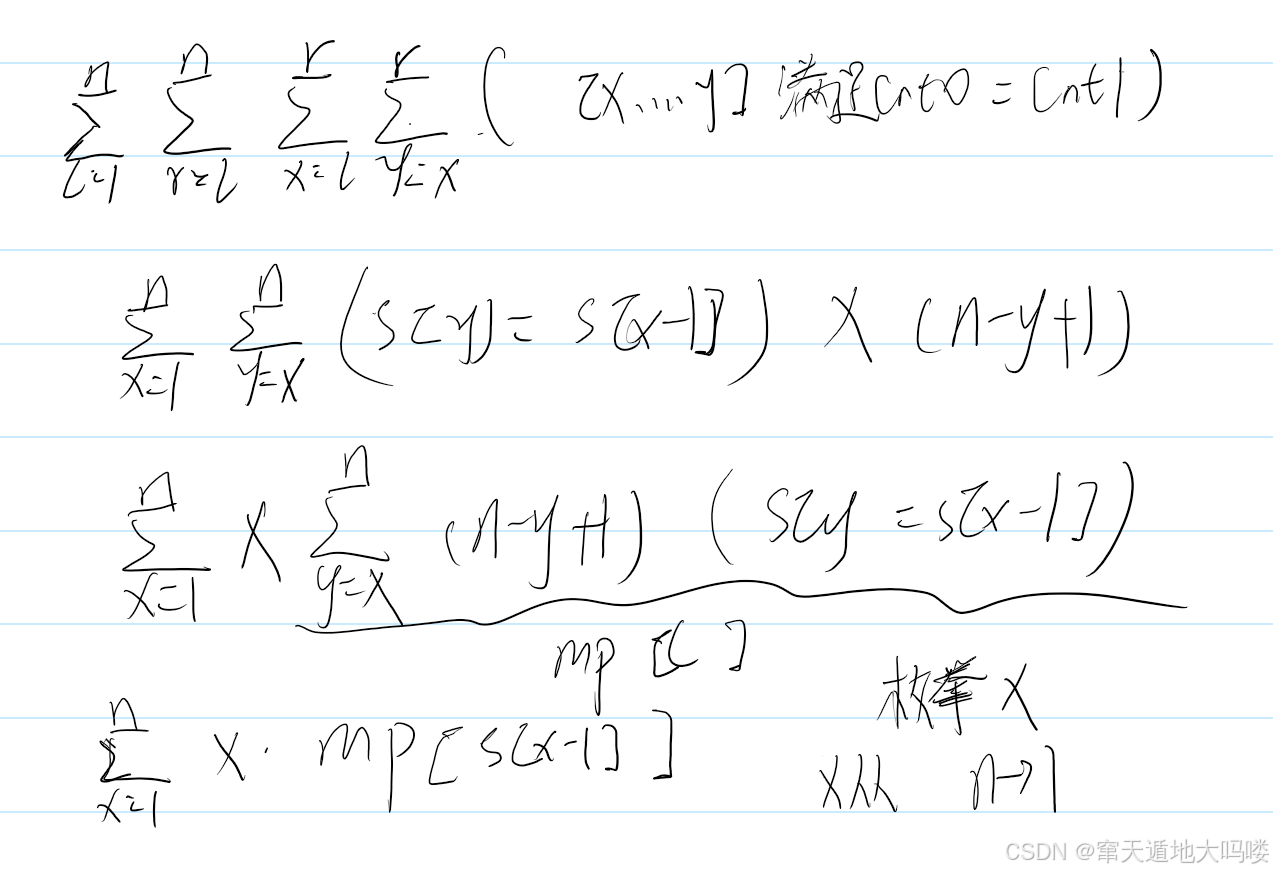 \sum_{l=1}^{n} \sum_{r=l}^{n} \sum_{x=l}^{r} \sum_{y=x}^{r} ( [x....y] 满足cnt0 = cnt1 )
\sum_{x=1}^{n} \sum_{y=x}^{n} ( s[y] = s[x-1] ) x (n-y+1)
\sum_{x=1}^{n} x \sum_{y=x}^{n} (n-y+1) ( s[y = s[x-1] )
mp [ ]
枚举 x
\sum_{x=1}^{n} x · mp[ s[x-1] ]
x从 n→1
CSDN @窜天遁地大吗喽